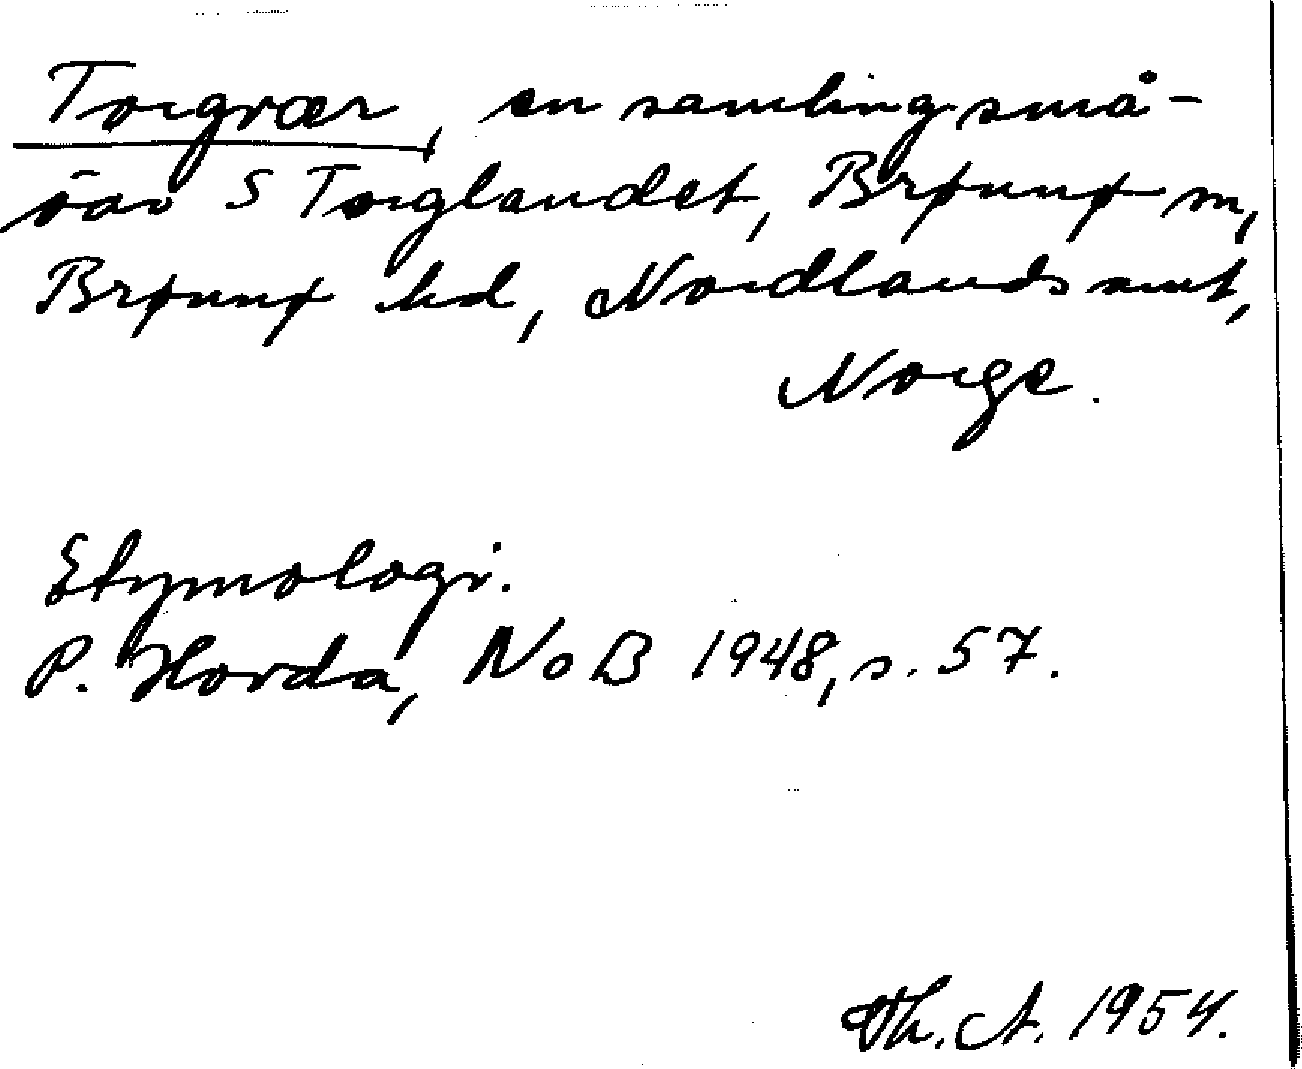 Torgvær, en samling små-
öar S Torglandet, Brønnø sn,
Brønnø hd, Nordlands amt,
Norge.
Etymologi.
P. Hovda, NoB 1948, s. 57.
Th. A. 1954.